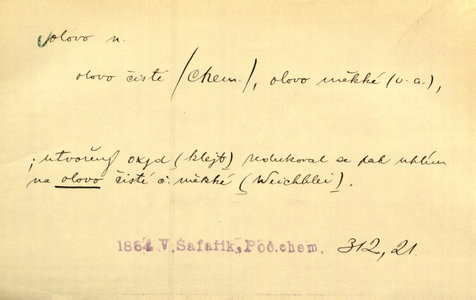 olovo n.
olovo čisté /chem./, olovo měkké (v. a.),
; utvořený oxyd (klejt) redukoval se pak uhlím
na olovo čisté č. měkké (Weichblei).
1884 V. Šafařík, Poč. chem. 312, 21.